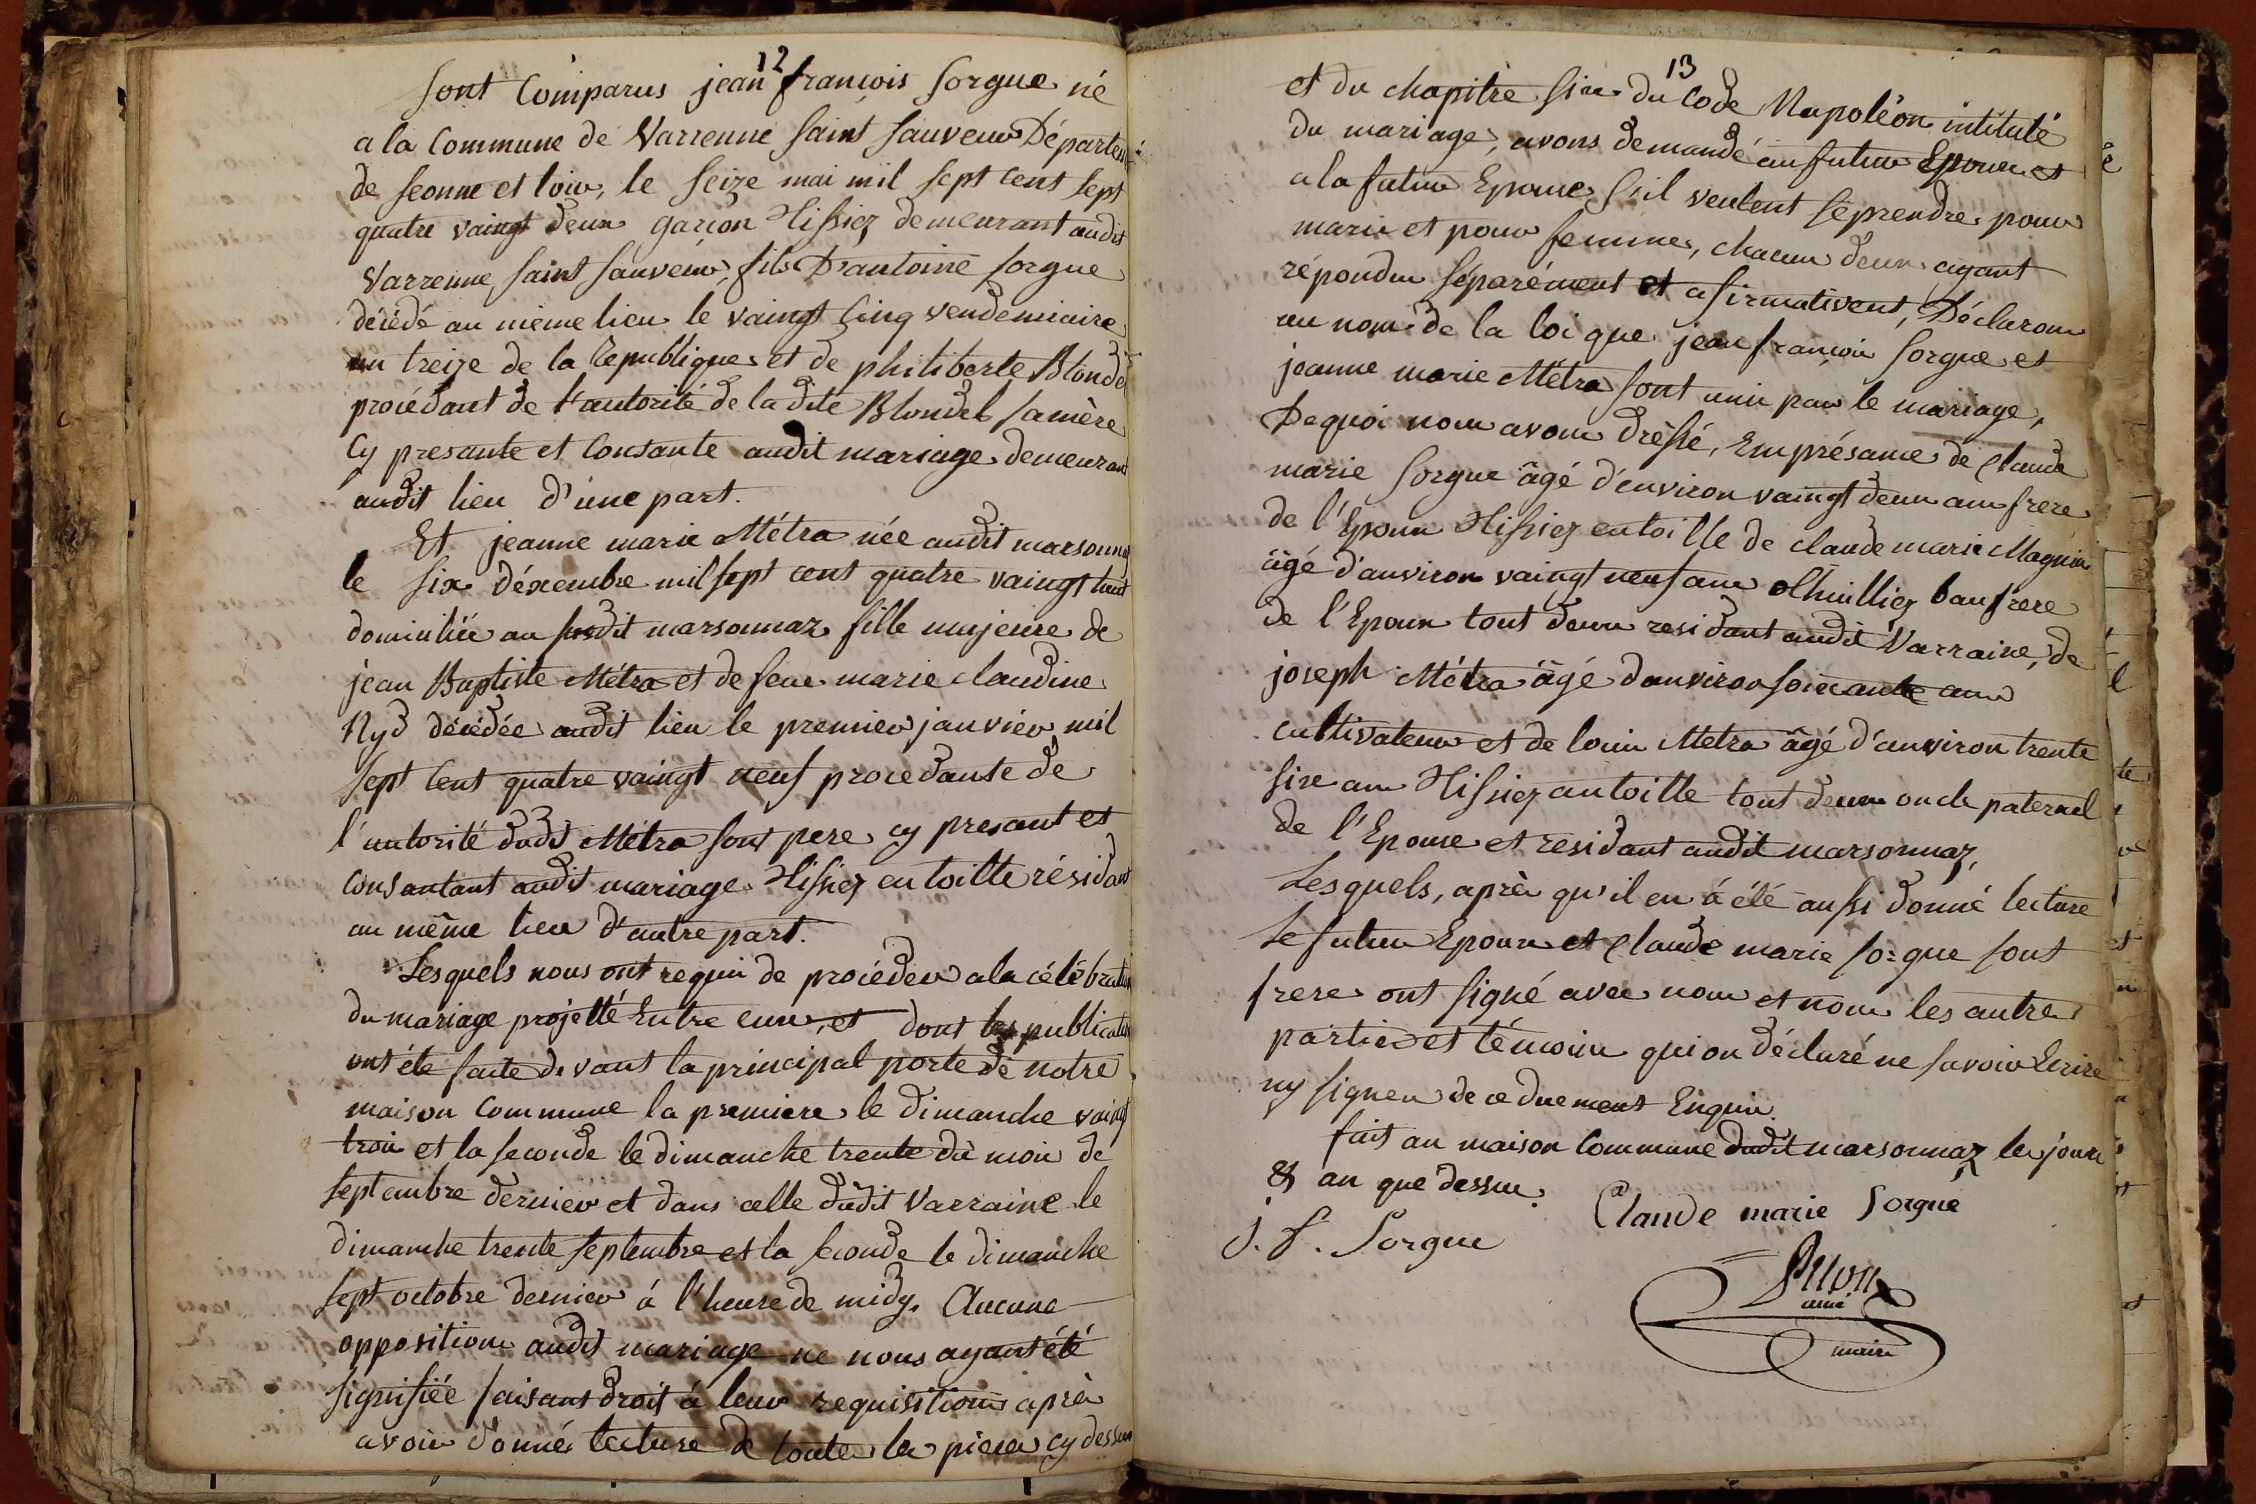 12
sont Comparus jean françois Sorgue né
a la Commune de Varrenne Saint Sauveur Départem
de seonne et loir, le seize mai mil sept cent sept
quatre vaingt deux garçon Tissiez demeurant audit
Varrenne Saint Sauveur, fils D'antoine Sorgue
décédé au même lieu le vaingt Cinq vendemiaire
an treize de la Republique et de philiberte Blondel
procédant de l'autorité de la dite Blondel sa mère
Cy presante et Consante audit mariage demeurant
audit lieu d'une part.
Et jeanne marie Métra née audit marsonnaz
le six décembre mil sept cent quatre vaingt huit
domiciliée au susdit marsonnaz fille majeure de
jean Baptiste Métra et de feue marie claudine
Nyd décédée audit lieu le premier janvier mil
sept Cent quatre vaingt neuf procedante de
l'autorité dudit Métra sont pere cy presant et
consantant audit mariage Tissiez en toille résidant
au même lieu d'autre part.
Lesquels nous ont requis de procéder a la célébration
du mariage projetté Entre eux, et dont les publications
ont été faite devant la principal porte de notre
maison Commune la premiere le dimanche vaingt
trois et la seconde le dimanche trente du mois de
septembre dernier et dans celle dudit Varraine le
dimanche trente septembre et la seconde le dimanche
sept octobre dernier á l'heure de midy. Aucune
opposition audit mariage ne nous ayant été
signifiée faisant droit á leur requisition après
avoir donné lecture de toute les pieces cy dessus
13
et du chapitre six du Code Napoléon intitulé
du mariage, avons demandé au futur Epoux et
a la future Epouse s'il veulent se prendre pour
marie et pour femme, chacun d'eux ayant
répondu séparément et afirmativent, Déclarons
au nom de la loi que jean françois Sorgue et
jeanne marie Métra sont unis par le mariage,
De quoi nous avons dressé, En présance de Claude
marie Sorgue âgé d'environ vaingt deux ans frere
de l'Epoux Tissiez en toille de claude marie Magnin
âgé d'anviron vaingt neuf ans huillier baufrere
de l'Epoux tout deux residant audit Varraine, de
joseph Métra âgé d'anviron soixante ans
cultivateur et de louis Metra âgé d'anviron trente
six ans Tissiez an toille tout deux oncle paternel
de l'Epouse et residant audit marsonnaz,
Lesquels, après qu'il en á été aussi donné lecture
Le futur Epoux et Claude marie Sorgue sont
frere ont signé avec nous et non les autre
parties et témoins qui on déclaré ne savoir Ecrire
ny signer de ce duement Enquis.
fait an maison Commune dudit marsonnaz les jours
& an que dessus.
Claude marie Sorgue
J. f. Sorgue
ainé
maire